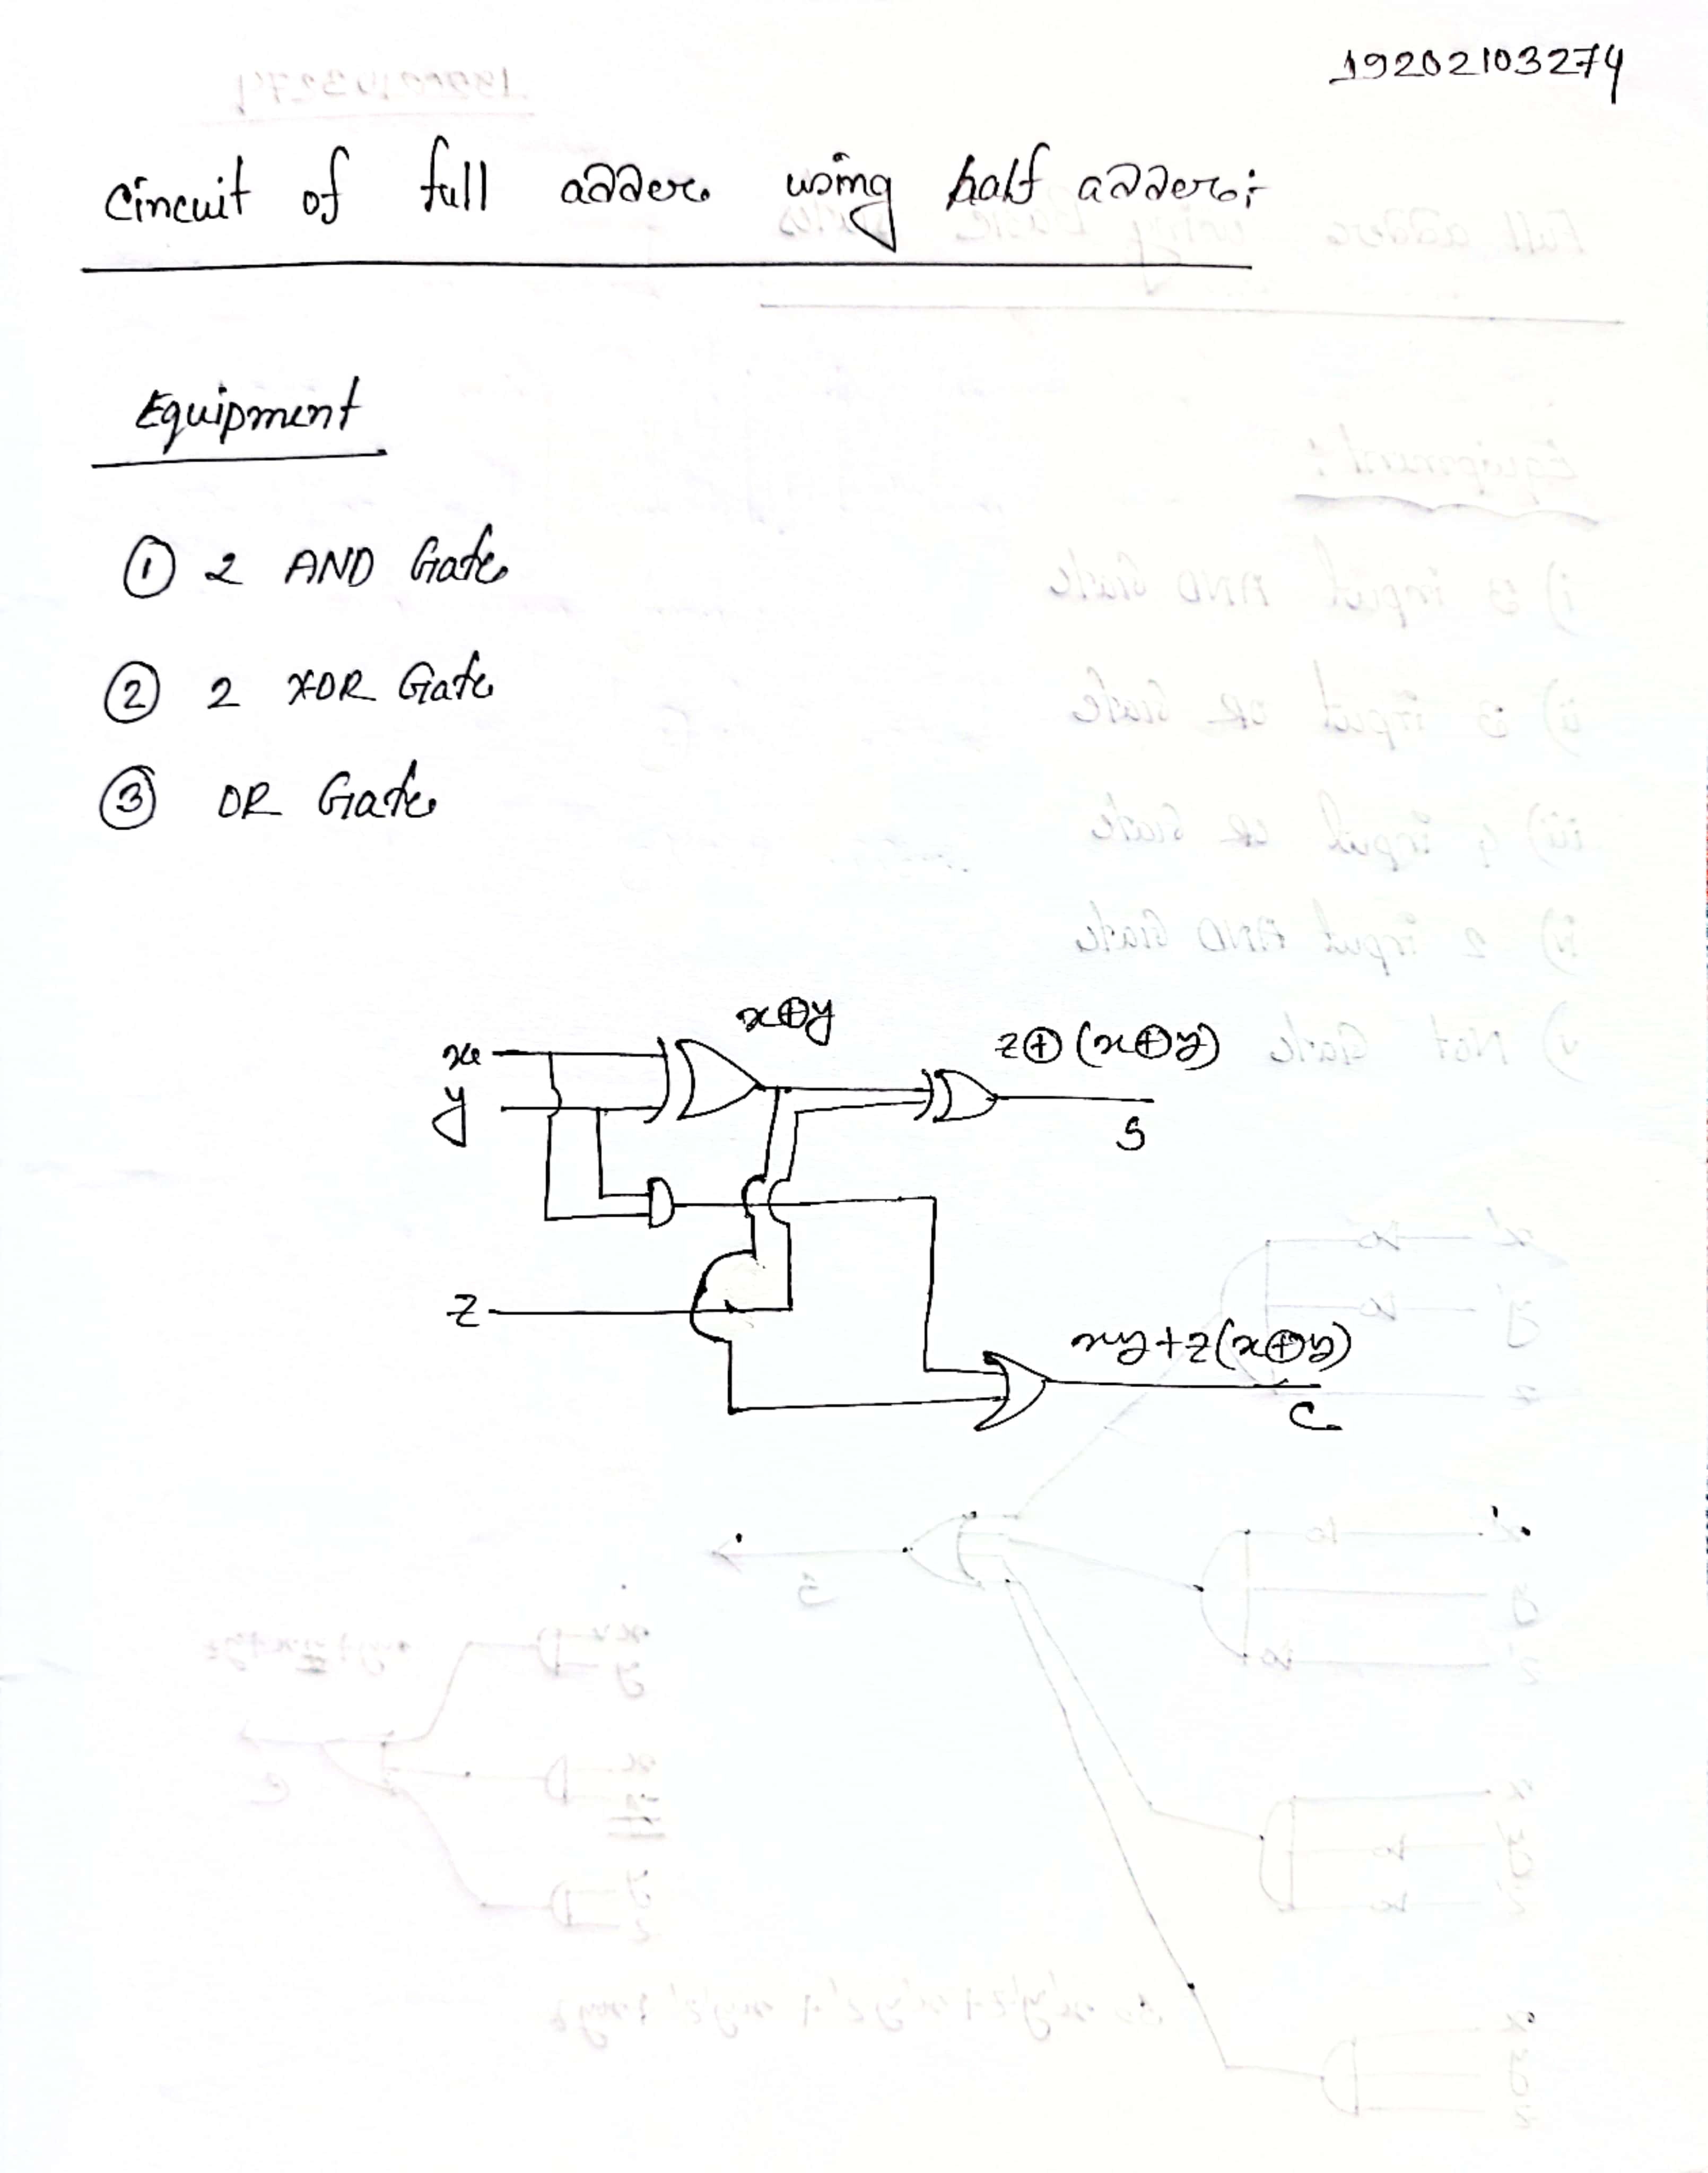 19202103274
Circuit of full adder using half adder:
Equipment
① 2 AND Gate
② 2 XOR Gate
③ OR Gate
x⊕y
z⊕(x⊕y)
x
y
S
z
xy+z(x⊕y)
C